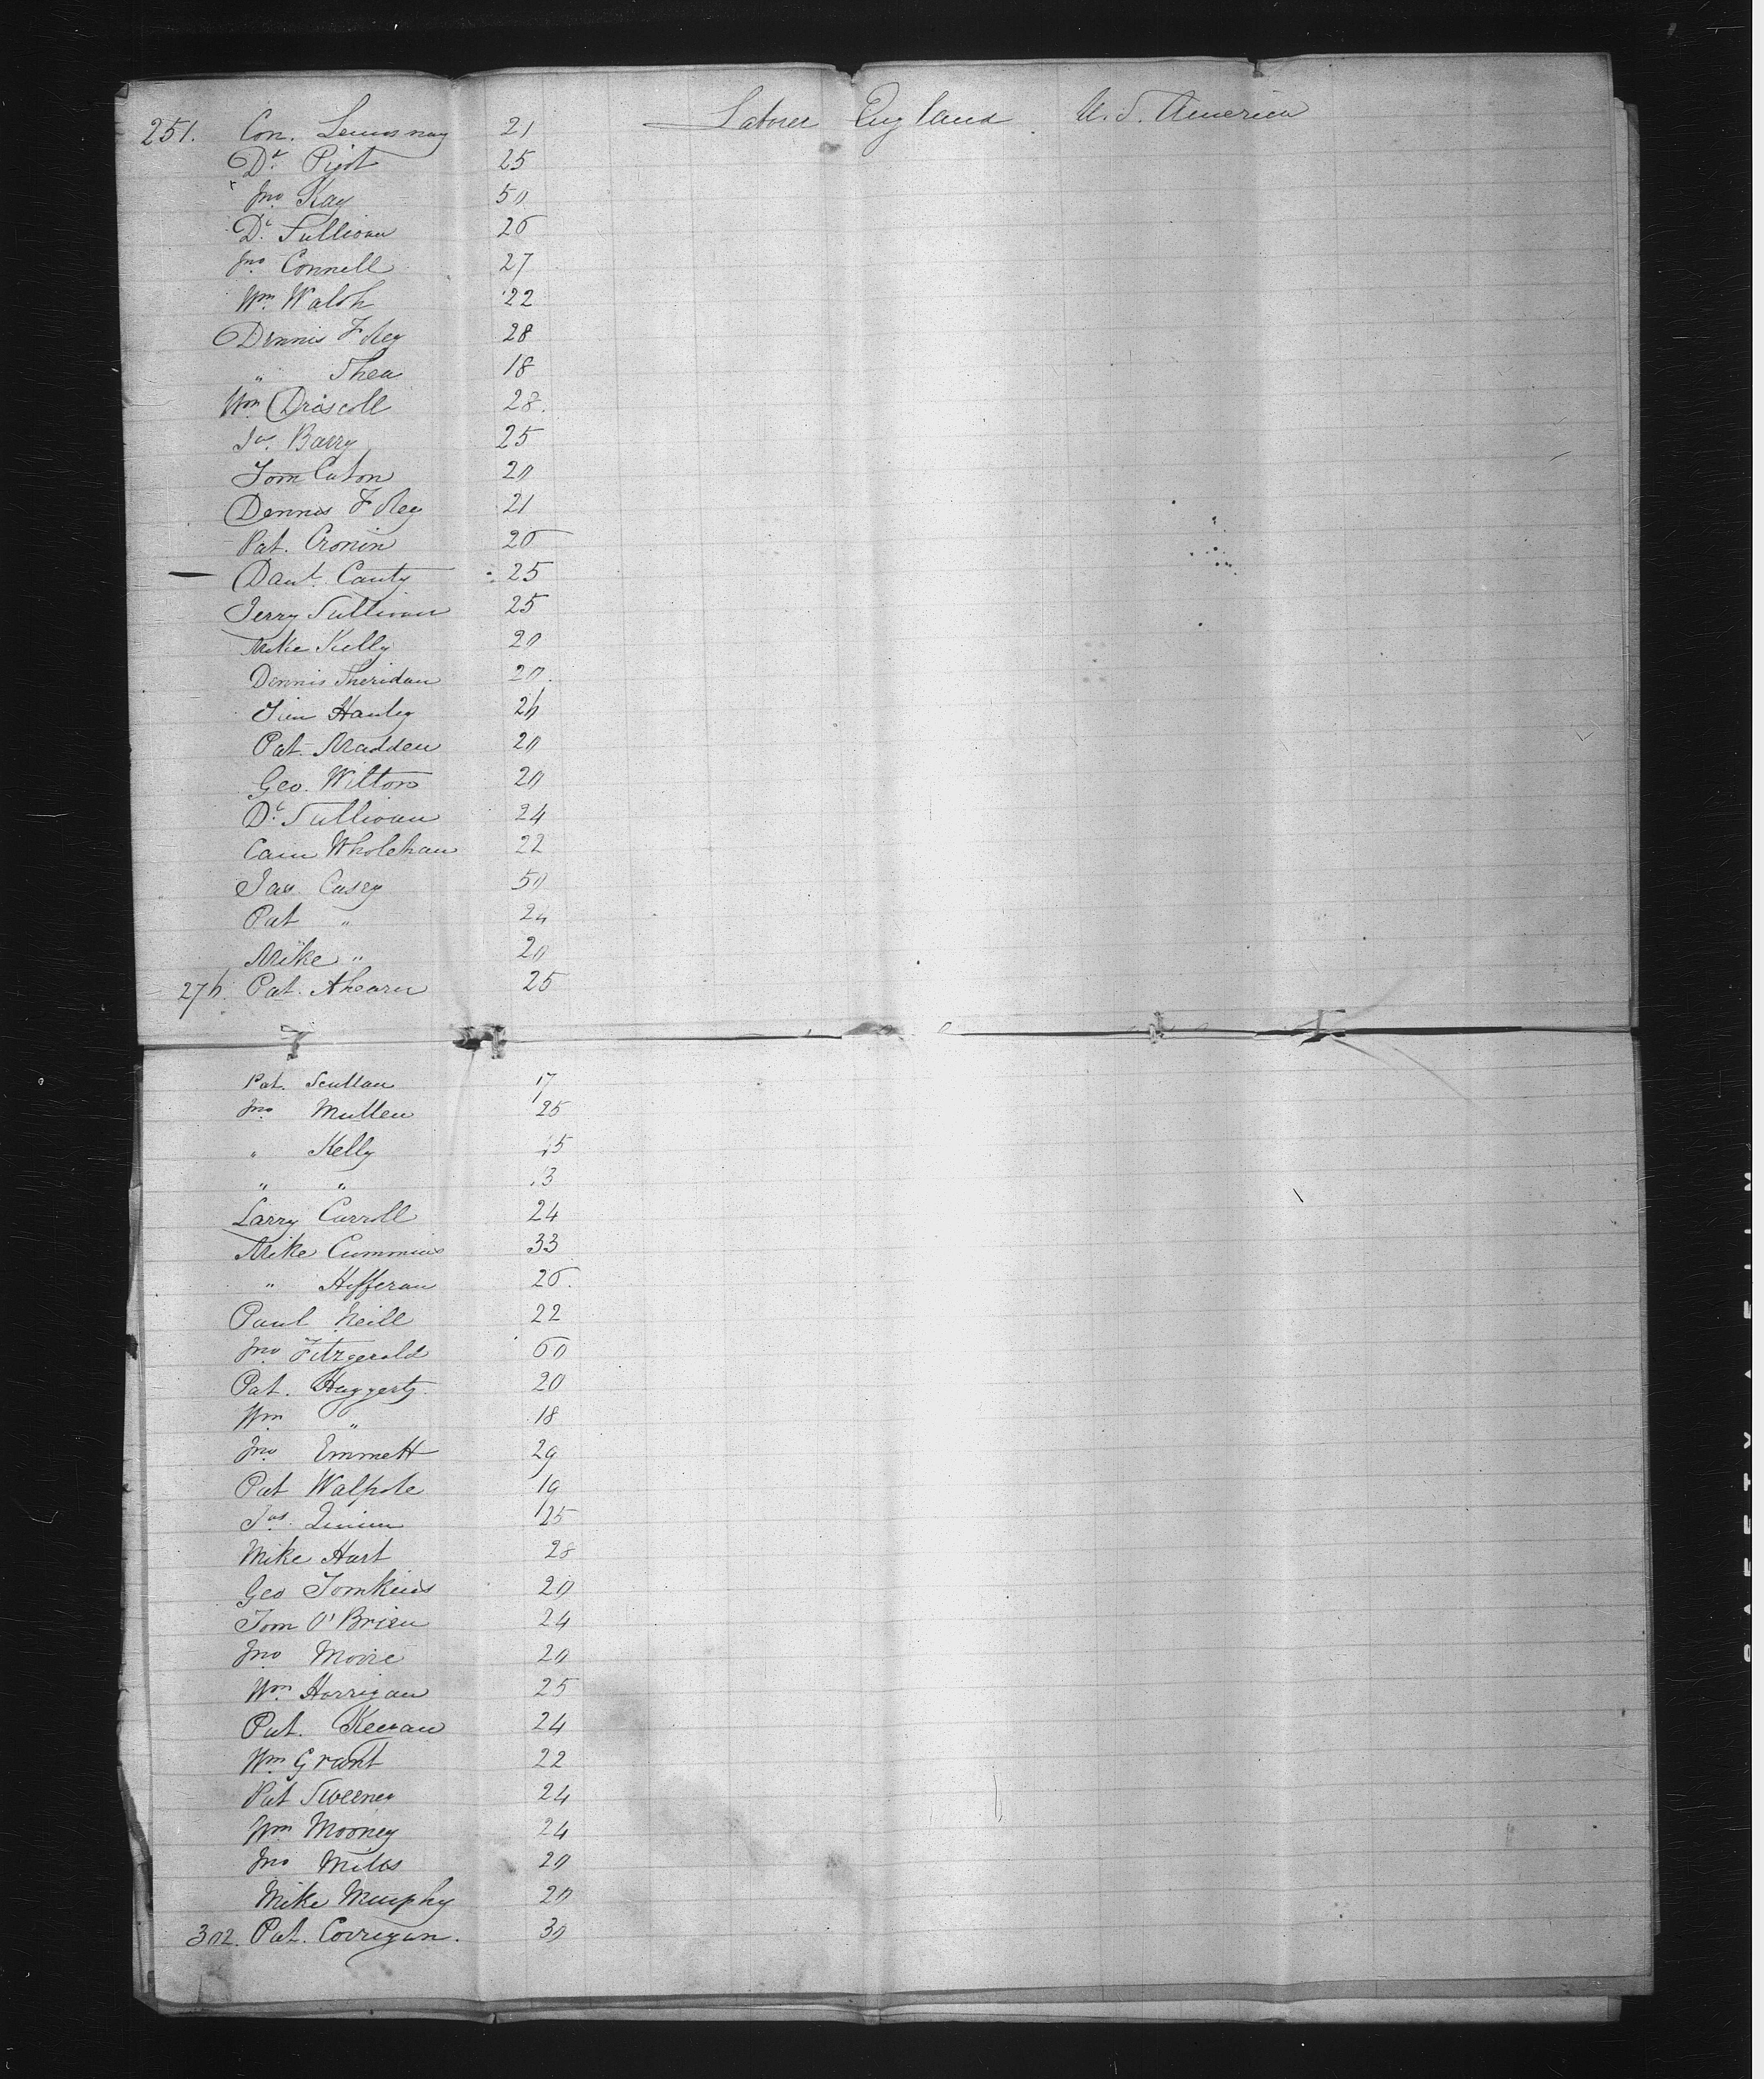 251. Con. 21 Laborer England U. S. America
Dl. Pigot 25
Jno. Kay 50
Dl. Sullivan 26
Jno. Connell 27
Wm. Walsh 22
Dennis Foley 28
" Shea 18
Wm Driscoll 28.
Jas. Barry 25
Tom Caton 20
Dennis Foley 21
Pat. Cronin 26
— Danl. Canty 25
Jerry Sullivan 25
Mike Kelly 20
Dennis Sheridan 20.
Tim Hanley 26
Pat. Madden 20
Geo. Wilton 20
Dl. Sullivan 24
Cain Wholehan 22
Jas. Casey 50
Pat " 24
Mike " 20
276. Pat. Ahearn 25
Pat. Scullan 17
Jno. Mullen 25
" Kelly 45
" " 13
Larry Carroll 24
Mike Cummins 33
" Hefferan 26.
Paul Neill 22
Jno. Fitzgerald 60
Pat. Haggerty. 20
Wm " 18
Jno. Emmett 29
Pat Walpole 19
Jas. 25
Mike Hart 28
Geo Tomkins 20
Tom O'Brien 24
Jno Moore 20
Wm. Horrigan 25
Pat. Keenan 24
Wm. Grant 22
Pat Sweeney 24
Wm Mooney 24
Jno Miles 20
Mike Murphy 20
302. Pat. Corrigan. 30